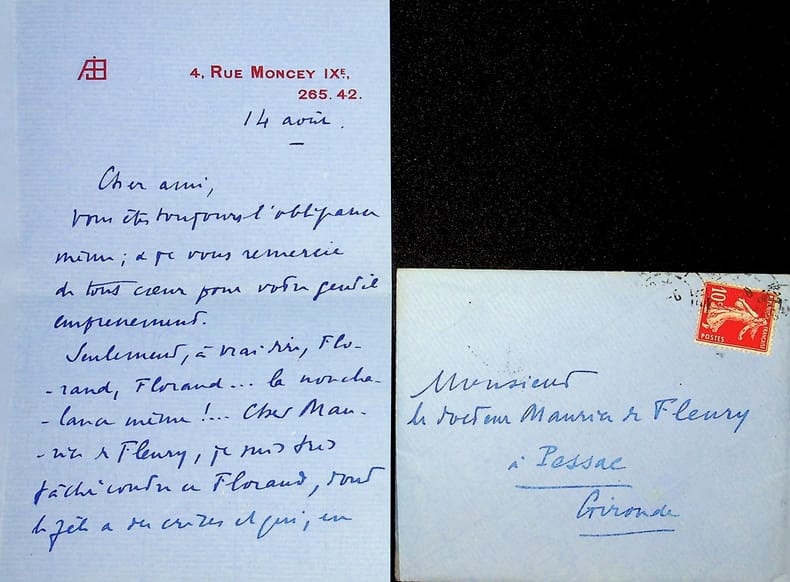 4, RUE MONCEY IXE.,
265.42.
14 août.
Cher ami,
vous êtes toujours l'obligeance
même ; & je vous remercie
de tout cœur pour votre gentil
empressement.
Seulement, à vrai dire, Flo-
-rand, Florand... la noncha-
-lance même !... Cher Mau-
-rice de Fleury, je suis très
fâché contre ce Florand, dont
le zèle a des crises et qui, en
10c
POSTES
Monsieur
le docteur Maurice de Fleury
à Pessac
Gironde